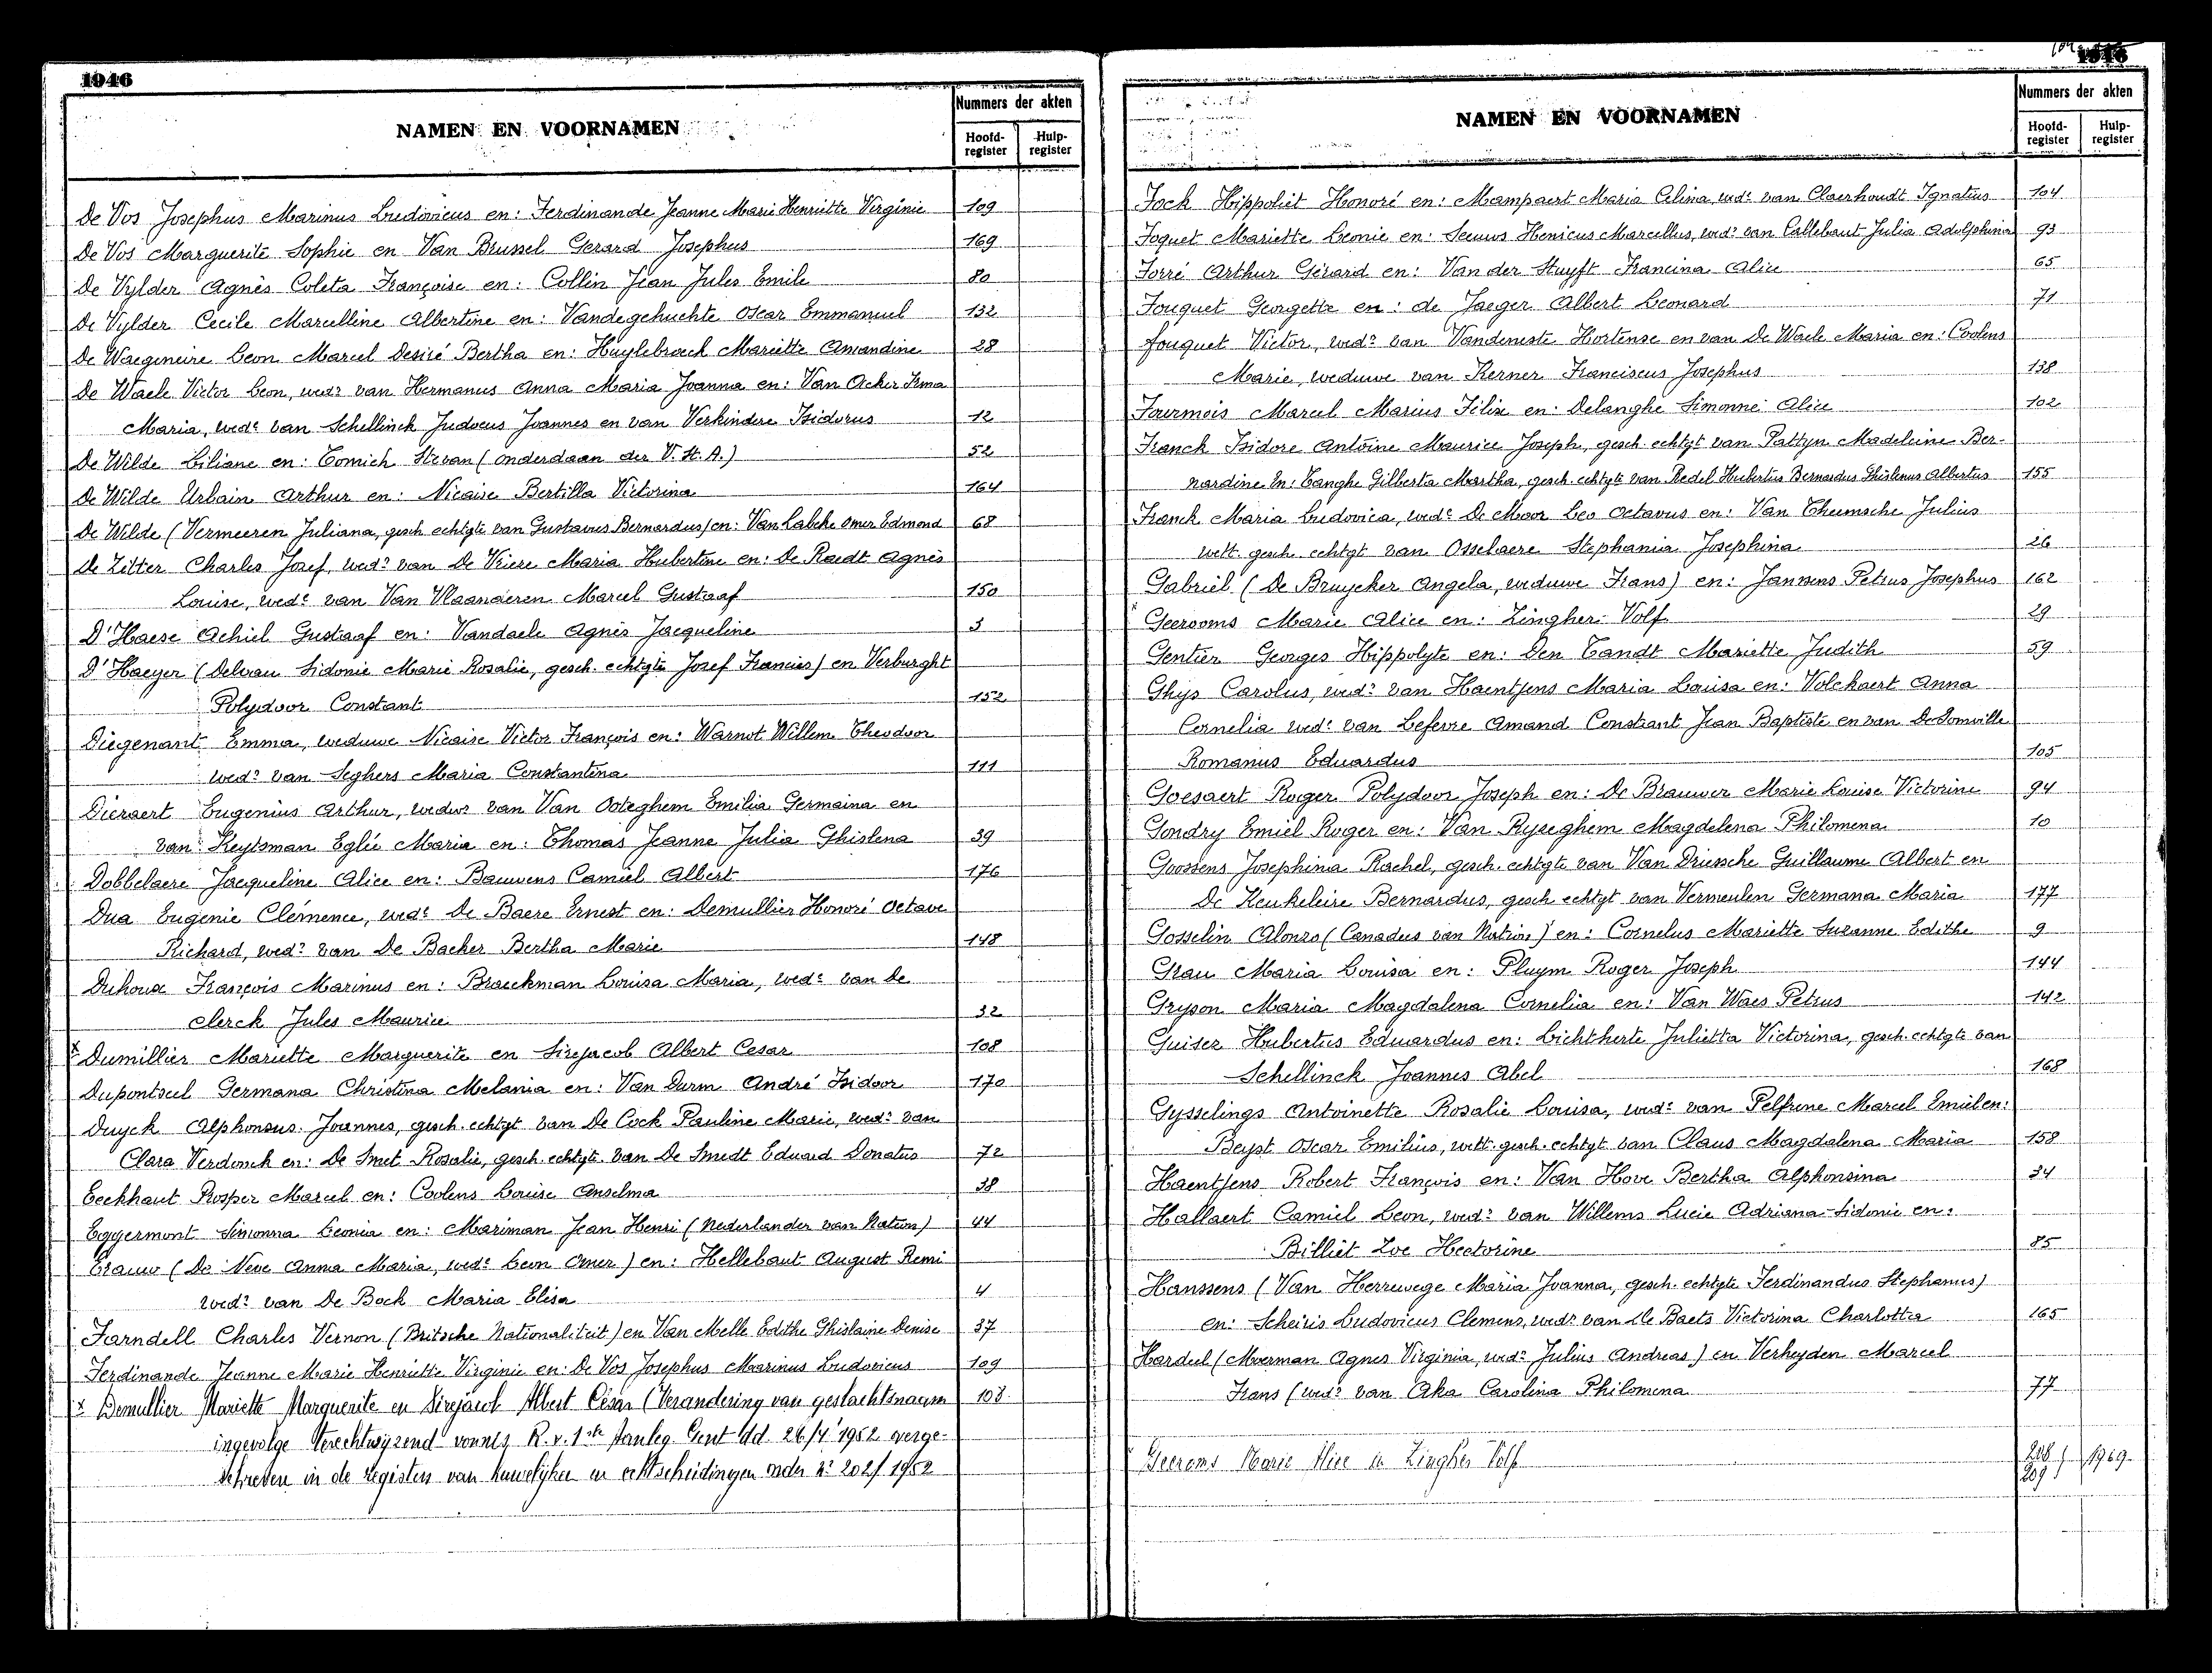 1946
NAMEN EN VOORNAMEN
Nummers der akten
Hoofd-register
Hulp-register
De Vos Josephus Marinus Ludovicus en: Ferdinande Jeanne Marie Henriette Virginie 109
De Vos Marguerite Sophie en Van Brussel Gerard Josephus 169
De Vylder Agnès Coleta Françoise en: Collin Jean Jules Emile 80
De Vylder Cecile Marcelline Albertine en: Vandegehuchte Oscar Emmanuel 132
De Waegeneire Leon Marcel Desiré Bertha en: Huylebroeck Mariette Amandine 28
De Waele Victor Leon, wedr van Hermanus Anna Maria Joanna en: Van Acker Irma
Maria, wede van Schellinck Judocus Joannes en van Verkindere Isidorus 12
De Wilde Liliane en: Tomich Stevan (onderdaan der V. St. A.) 52
De Wilde Urbain Arthur en: Nicaise Bertilla Victorina 164
De Wilde (Vermeeren Juliana, gesch. echtgte van Gustavus Bernardus) en: Van Labeke Omer Edmond 68
De Zitter Charles Josef, wedr van De Vriere Maria Hubertine en: De Raedt Agnès
Louise, wede van Van Vlaanderen Marcel Gustaaf 150
D'Haese Achiel Gustaaf en: Vandaele Agnès Jacqueline 3
D'Haeyer (Delvau Sidonie Marie Rosalie, gesch. echtgte Josef Francies) en Verburght
Polydoor Constant 152
Diegenant Emma, weduwe Nicaise Victor François en: Warnot Willem Theodoor
wedr van Seghers Maria Constantina 111
Dieraert Eugenius Arthur, wedwr van Van Ooteghem Emilia Germaina en
van Keytsman Eglié Maria en: Thomas Jeanne Julia Ghislena 39
Dobbelaere Jacqueline Alice en: Bauwens Camiel Albert 176
Dua Eugenie Clémence, wede De Baere Ernest en: Demullier Honoré Octave
Richard, wedr van De Backer Bertha Marie 148
Duhoux François Marinus en: Braeckman Louisa Maria, wede van De
Clerck Jules Maurice 32
x Dumillier Mariette Marguerite en Sirejacob Albert Cesar 108
Dupontseel Germana Christina Melania en: Van Durm André Isidoor 170
Duyck Alphonsus Joannes, gesch. echtgt van De Cock Pauline Marie, wedr van
Clara Verdonck en: De Smet Rosalie, gesch. echtgte van De Smedt Eduard Donatus 72
Eeckhaut Prosper Marcel en: Coolens Louise Anselma 38
Eggermont Simonna Leonia en: Mariman Jean Henri (Nederlander van Natien) 44
Erauw (De Neve Anna Maria, wede Leon Omer) en: Hellebaut August Remi
wedr van De Bock Maria Elisa 4
Farndell Charles Vernon (Britsche Nationaliteit) en Van Melle Edithe Ghislaine Denise 37
Ferdinande Jeanne Marie Henriette Virginie en: De Vos Josephus Marinus Ludovicus 109
x Demullier Mariette Marguerite en Sirejacob Albert César (Verandering van geslachtsnaam 108
ingevolge terechtwijzend vonnis R. v. 1ste Aanleg Gent dd. 26/4/1952 overge-
schreven in de registers van huwelijken en echtscheidingen onder nr 202/1952
1946
NAMEN EN VOORNAMEN
Nummers der akten
Hoofd-register
Hulp-register
Fock Hippoliet Honoré en: Mampaert Maria Celina, wede van Claerhoudt Ignatius 104
Foquet Mariette Leonie en: Seeuws Henicus Marcellus, wedr van Callebaut Julia Adolphina 93
Forré Arthur Gérard en: Van der Stuyft Francina Alice 65
Fouquet Georgette en: de Jaeger Albert Leonard 71
Fouquet Victor, wedr van Vandeneste Hortense en van De Waele Maria en: Coolens
Marie, weduwe van Kerner Franciscus Josephus 138
Fourmois Marcel Marius Félix en: Delanghe Simonne Alice 102
Franck Isidore Antoine Maurice Joseph, gesch. echtgt van Pattyn Madeleine Ber-
nardine en: Tanghe Gilberta Martha, gesch. echtgte van Redel Hubertus Bernardus Ghislenus Albertus 155
Franck Maria Ludovica, wede De Moor Leo Octavus en: Van Theemsche Julius
wett. gesch. echtgt van Osselaere Stephania Josephina 26
Gabriël (De Bruycker Angela, weduwe Frans) en: Janssens Petrus Josephus 162
x Geerooms Marie Alice en: Zingher Volf 29
Gentier Georges Hippolyte en: Den Tandt Mariette Judith 59
Ghys Carolus, wedr van Haentjens Maria Louisa en: Volckaert Anna
Cornelia wede van Lefevre Amand Constant Jean Baptiste en van De Somville
Romanus Eduardus 105
Goesaert Roger Polydoor Joseph en: De Brauwer Marie Louise Victorine 94
Gondry Emiel Roger en: Van Ryseghem Magdelena Philomena 10
Goossens Josephina Rachel, gesch. echtgte van Van Driessche Guillaume Albert en
De Keukeleire Bernardus, gesch. echtgt van Vermeulen Germana Maria 177
Gosselin Alonzo (Canadus van Natien) en: Cornelus Mariette Suzanne Edithe 9
Grau Maria Louisa en: Pluym Roger Joseph 144
Gryson Maria Magdalena Cornelia en: Van Waes Petrus 142
Guiser Hubertus Eduardus en: Lichtherte Julietta Victorina, gesch. echtgte van
Schellinck Joannes Abel 168
Gysselings Antoinette Rosalie Louisa, wede van Pelfrene Marcel Emiel en:
Beyst Oscar Emilius, wett. gesch. echtgt van Claus Magdalena Maria 158
Haentjens Robert François en: Van Hove Bertha Alphonsina 34
Hallaert Camiel Leon, wedr van Willems Lucie Adriana Sidonie en:
Billiet Zoe Hectorine 85
Hanssens (Van Herrewege Maria Joanna, gesch. echtgte Ferdinandus Stephanus)
en: Scheiris Ludovicus Clemens, wedr van De Baets Victorina Charlotta 165
Hardul (Moerman Agnes Virginia, wede Julius Andreas) en Verheyden Marcel
Frans (wedr van Aka Carolina Philomena 77
Geeroms Marie Alice en Zingher Volf 208 209 1969